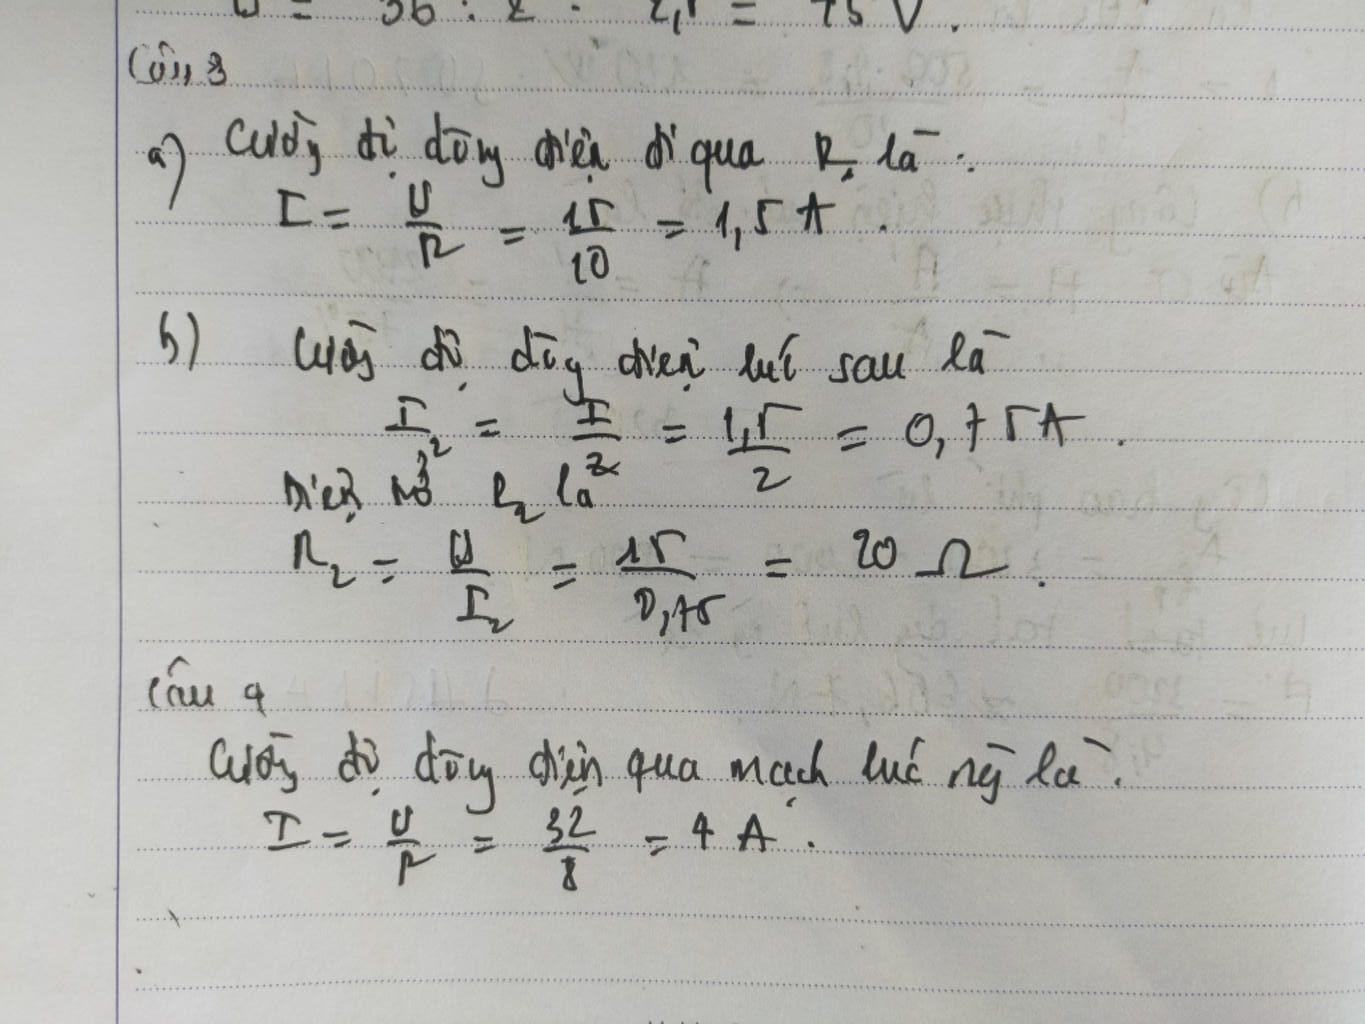 = 36 : 2 . 2,5 = 45 V.
Câu 3
a) Cường độ dòng điện đi qua R₁ là :
I = U/R = 15/10 = 1,5 A.
b) Cường độ dòng điện lúc sau là
I₂ = I/2 = 1,5/2 = 0,75A.
Điện trở R₂ là
R₂ = U/I₂ = 15/0,75 = 20 Ω.
Câu 4
Cường độ dòng điện qua mạch lúc này là.
I = U/R = 32/8 = 4 A.